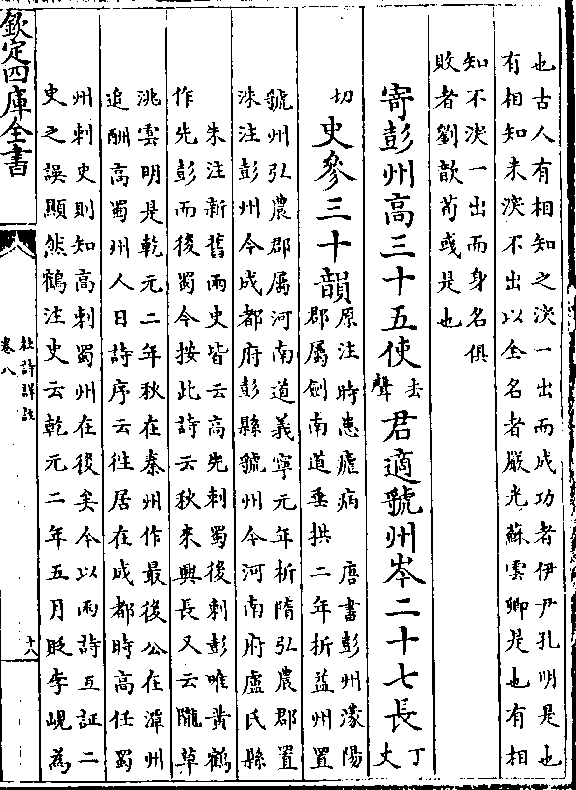 也古人有相知之深一出而成功者伊尹孔明是也
有相知未深不出以全名者嚴光蘇雲卿是也有相
知不深一出而身名俱
敗者劉歆荀彧是也
寄彭州高三十五使去聲君適虢州岑二十七長丁丈
切史參三十韻原注時患瘧病 唐書彭州濛陽
郡屬劍南道垂拱二年析益州置
虢州弘農郡屬河南道義寧元年析隋弘農郡置
洙注彭州今成都府彭縣虢州今河南府盧氏縣
朱注新舊兩史皆云高先刺蜀後刺彭唯黃鶴
作先彭而後蜀今按此詩云秋來興長又云隴草
洮雲明是乾元二年秋在秦州作最後公在潭州
追酬高蜀州人日詩序云往居在成都時高任蜀
州刺史則知高刺蜀州在後矣今以兩詩互証二
史之誤顯然鶴注史云乾元二年五月貶李峴為
欽定四庫全書
杜詩詳註
卷八
十八